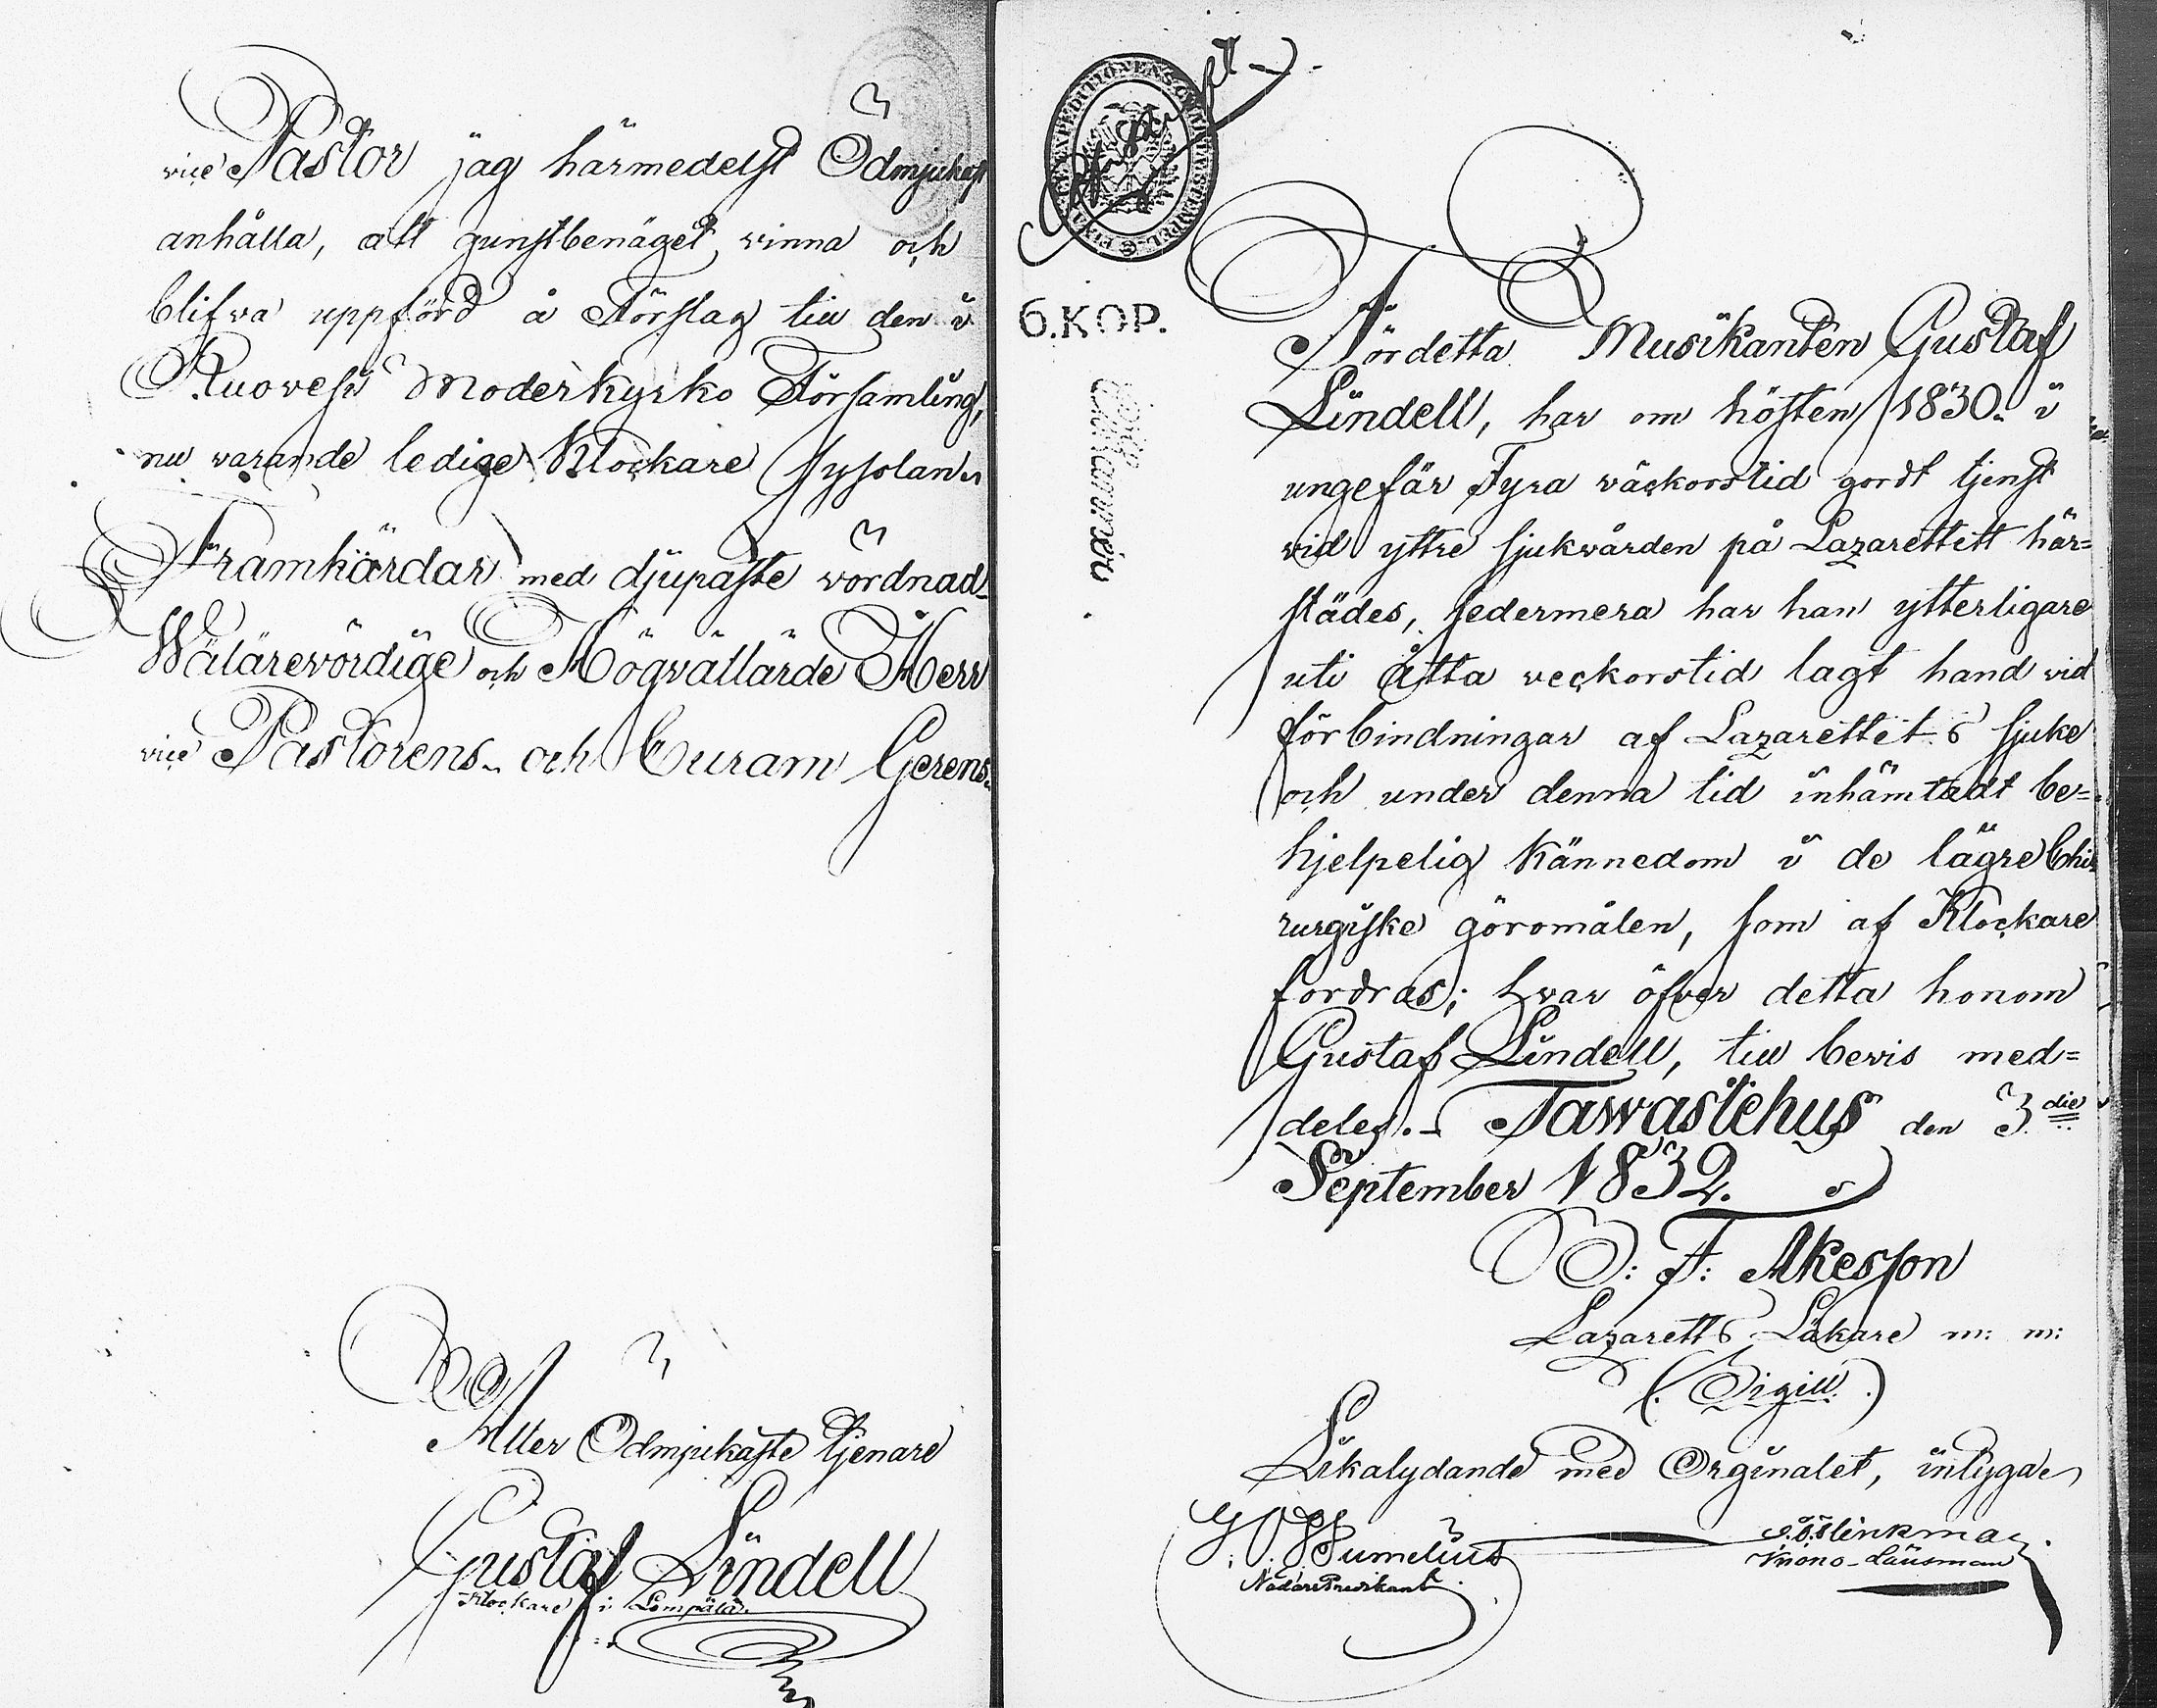 vice Pastor jag härmedelst Ödmjukast
anhålla, att gunstbenäget vinna och
blifva uppförd å Förslag till den i
Ruovesi Moderkyrko Församling,
nu varande ledige Klockare sysslan.
Framhärdar med djupaste vördnad
Wälärevördige och Högvällärde Herr
vice Pastorens och Curam Gerens.
Aller Ödmjukaste tjenare
Gustaf Lindell
Klockare i Lempälä.
6.KOP.
Fördetta Musikanten Gustaf
Lindell, har om hösten 1830. i
ungefär Fyra väckorstid gordt tjenst
vid yttre sjukvården på Lazarettett här=
städes, sedermera har han ytterligare
uti åtta veckorstid lagt hand vid
förbindningar af Lazarettets sjuke
och under denna tid inhämtadt be=
hjelpelig kännedom i de lägre Chi-
rurgiske göromålen, som af Klockare
fordras; hvar öfver detta honom
Gustaf Lindell, till bevis med=
deles. Tawastehus den 3die
September 1832.
O: F: Åkesson
Lazaretts Läkare m: m:
(: Sigill :)
Likalydande med Orginalet, intyga
Krono-Länsman